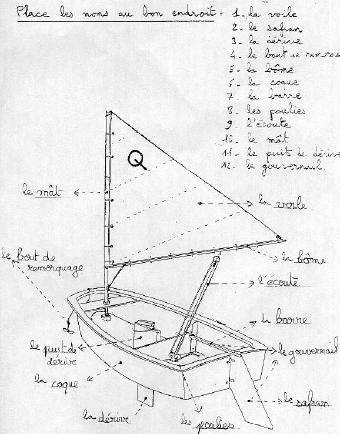 Place les noms au bon endroit.
1- la voile
2- le safran
3- la dérive
4- le bout de remorquage
5- la bôme
6- la coque
7- la barre
8- les poulies
9- l'écoute
10- le mât
11- le puit de dérive
12- le gouvernail
Q
le mât
la voile
le bout de
remorquage
la bôme
l'écoute
la barre
le gouvernail
le puit de
dérive
la coque
la dérive
les poulies
le safran